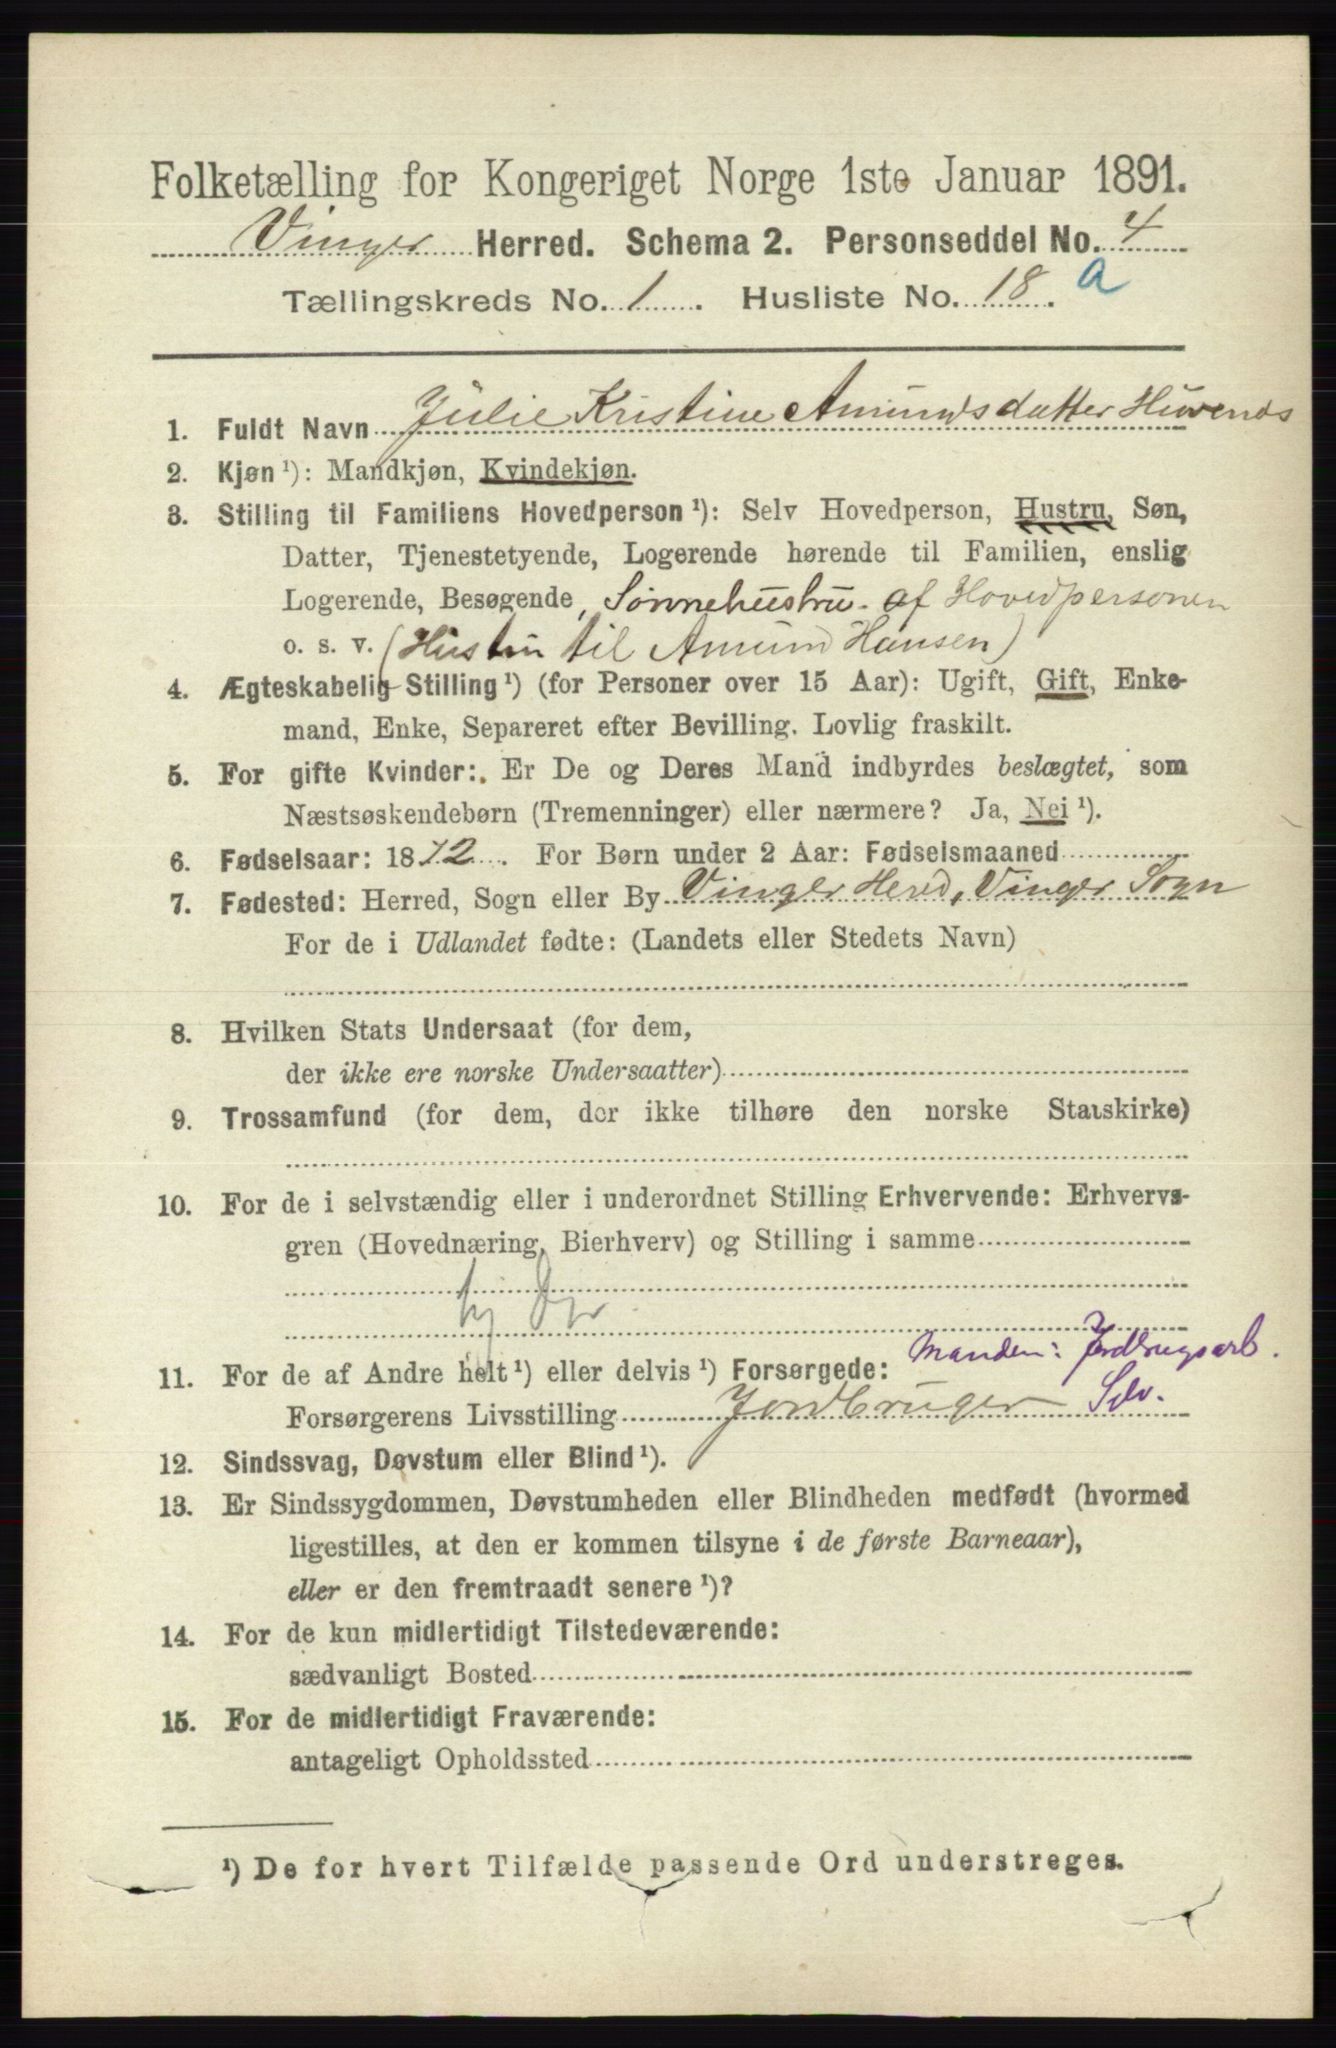 Folketælling for Kongeriget Norge 1ste Januar 1891.
Vinger Herred. Schema 2. Personseddel No. 4
Tællingskreds No. 1. Husliste No. 18. a
1. Fuldt Navn Julie Kristine Amundsdatter
2. Kjøn ¹): Mandkjøn, Kvindekjøn.
3. Stilling til Familiens Hovedperson ¹): Selv Hovedperson, Hustru, Søn,
Datter, Tjenestetyende, Logerende hørende til Familien, enslig
Logerende, Besøgende, Sønnehustru af Hovedpersonen
o. s. v. (Hustru til Amund Hansen)
4. Ægteskabelig Stilling ¹) (for Personer over 15 Aar): Ugift, Gift, Enke-
mand, Enke, Separeret efter Bevilling. Lovlig fraskilt.
5. For gifte Kvinder: Er De og Deres Mand indbyrdes beslægtet, som
Næstsøskendebørn (Tremenninger) eller nærmere? Ja, Nei ¹).
6. Fødselsaar: 1872. For Børn under 2 Aar: Fødselsmaaned
7. Fødested: Herred, Sogn eller By Vinger Hered, Vinger Sogn
For de i Udlandet fødte: (Landets eller Stedets Navn)
8. Hvilken Stats Undersaat (for dem,
der ikke ere norske Undersaatter)
9. Trossamfund (for dem, der ikke tilhøre den norske Statskirke)
10. For de i selvstændig eller i underordnet Stilling Erhvervende: Erhvervs-
gren (Hovednæring, Bierhverv) og Stilling i samme
Manden: Jordbrugsarb.
11. For de af Andre helt ¹) eller delvis ¹) Forsørgede:
Forsørgerens Livsstilling Jordbruger Selv.
12. Sindssvag, Døvstum eller Blind ¹).
13. Er Sindssygdommen, Døvstumheden eller Blindheden medfødt (hvormed
ligestilles, at den er kommen tilsyne i de første Barneaar),
eller er den fremtraadt senere ¹)?
14. For de kun midlertidigt Tilstedeværende:
sædvanligt Bosted
15. For de midlertidigt Fraværende:
antageligt Opholdssted
¹) De for hvert Tilfælde passende Ord understreges.